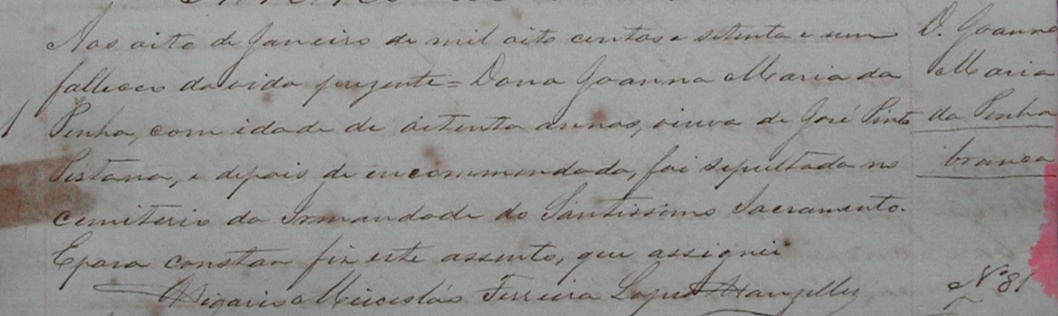 Aos oito de Janeiro de mil oito centos e setenta e um
falleceo da vida prezente = Dona Joanna Maria da
1 Penha, com idade de oitenta annos, viuva de José Pinto
Pestana, e depois de encommendada, foi sepultada no
cemiterio da Irmandade do Santissimo Sacramento.
E para constar fiz este assento, que assignei
Vigario Ferreira Lopes
D. Joanna
Maria
da Penha
branca
Nº 81